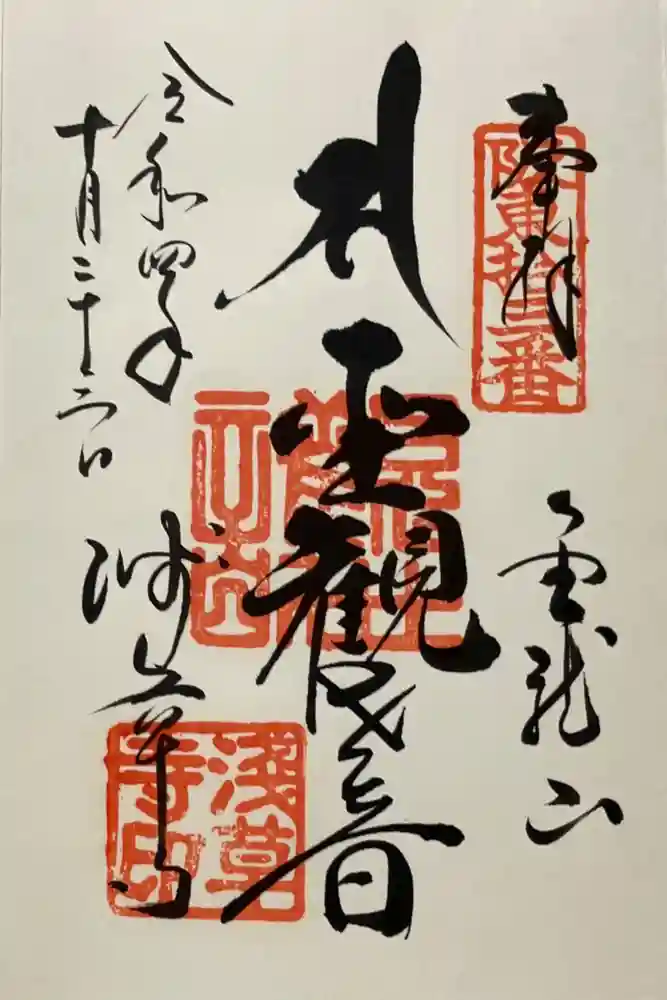 奉拝
坂東拾三番
金龍山
聖観世音
浅草寺
浅草寺印
令和四年
十月二十六日